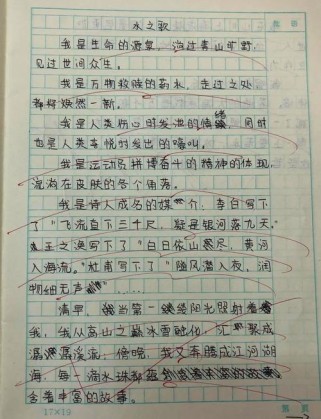 水之歌
我是生命的源泉，流过青山旷野，
见过世间众生。
我是万物救赎的药水，走过之处
都将焕然一新。
我是人类伤心时发泄的情绪，同时
也是人类喜悦时发出的嚎叫。
我是运动员拼搏奋斗的精神的体现，
流淌在皮肤的各个角落。
我是诗人成名的媒介，李白写下
了“飞流直下三千尺，疑是银河落九天。”
王之涣写下了“白日依山尽，黄河
入海流。”杜甫写下了“随风潜入夜，润
物细无声”……
清早，当第一缕阳光照射着
我，我从高山之巅冰雪融化，汇聚成
潺潺溪流；傍晚，我又奔腾成江河湖
海，每一滴水珠都
含着丰富的故事。
17×19
第 页